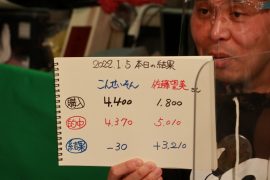 2022.1.5 本日の結果
こんせいそん 佐藤望美さん
購入 4,400 1,800
的中 4,370 5,010
結果 -30 +3,210